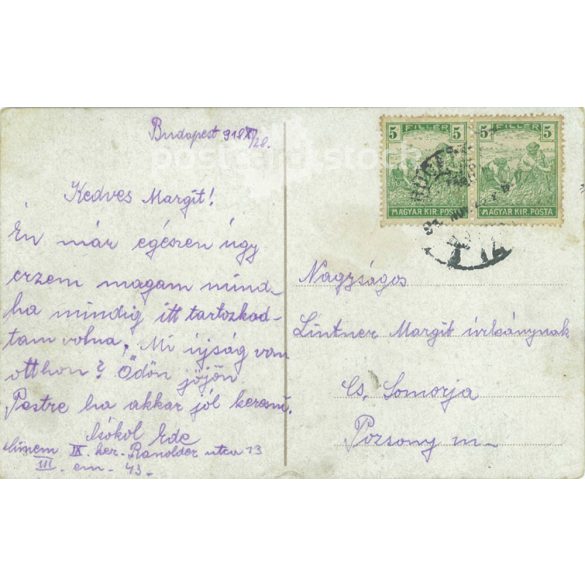 Budapest 918 XI/20.
Kedves Margit!
Én már egészen úgy
érzem magam mind-
ha mindig itt tartozkod-
tam volna. Mi újság van
otthon? Ödön jöjjön
Pestre ha akkar jól keresni.
Csókol Ede
Címem IX. ker. Ranolder utca 13
III. em. 43.
5 FILLÉR 5
MAGYAR KIR. POSTA
5 FILLÉR 5
MAGYAR KIR. POSTA
Nagyságos
Lintner Margit úrleánynak
Cs. Somorja
Pozsony m.